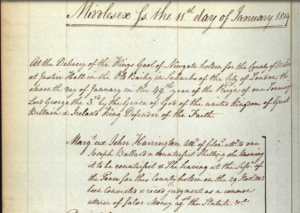 Middlesex ss. the 11th day of January 1809
At the Delivery of the Kings Gaol of Newgate holden for the County of
at Justice Hall in the Old Bailey in the Suburbs of the City of London the
eleventh day of January in the 49th year of the Reign of our Sovereign
Lord George the 3d by the Grace of God of the united Kingdom of Great
Britain & Ireland King Defender of the Faith.
Margt ux. John Harrington of to one
Joseph Ballard a counterfeit Shilling she knowing
it to be counterfeit & She having at the
the Peace for this County holden on the
been convicted & reced judgment as a common
utterer of false Money agt the Statute &c